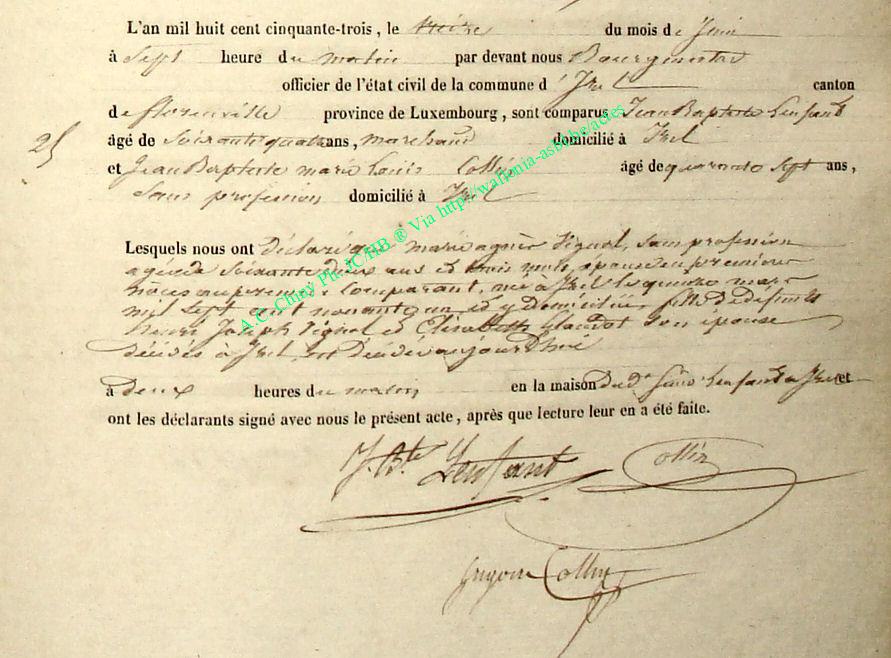 L'an mil huit cent cinquante-trois, le treize du mois de Juin
à sept heure du matin par devant nous Bourgmestre
officier de l'état civil de la commune d'Izel canton
de florenville province de Luxembourg, sont comparus Jean Baptiste Lenfant
âgé de soixante quatre ans, marchand domicilié à Izel
25
et Jean Baptiste marie Louis Collin âgé de quarante sept ans,
sans profession domicilié à Izel
Lesquels nous ont déclaré que marie agnès Pignol, sans profession
agée de soixante deux ans et trois mois, épouse en premières
noces au premier comparant, née à Izel le quinze mars
mil sept cent nonante un et y domiciliée fille de défunts
henri Joseph Pignol et Elisabeth son épouse
décédés à Izel, est décédée aujourd'hui
à deux heures du matin en la maison du dt Sieur Lenfant à Izel et
ont les déclarants signé avec nous le présent acte, après que lecture leur en a été faite.
J. Bte Lenfant Collin
Collin
A.C. Chiny Ph. JC/HB ® Via http://wallonia-asbl.be/actes